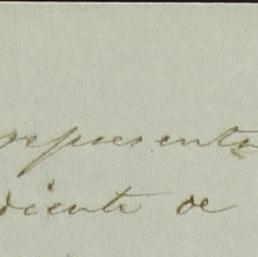 representa
diente de